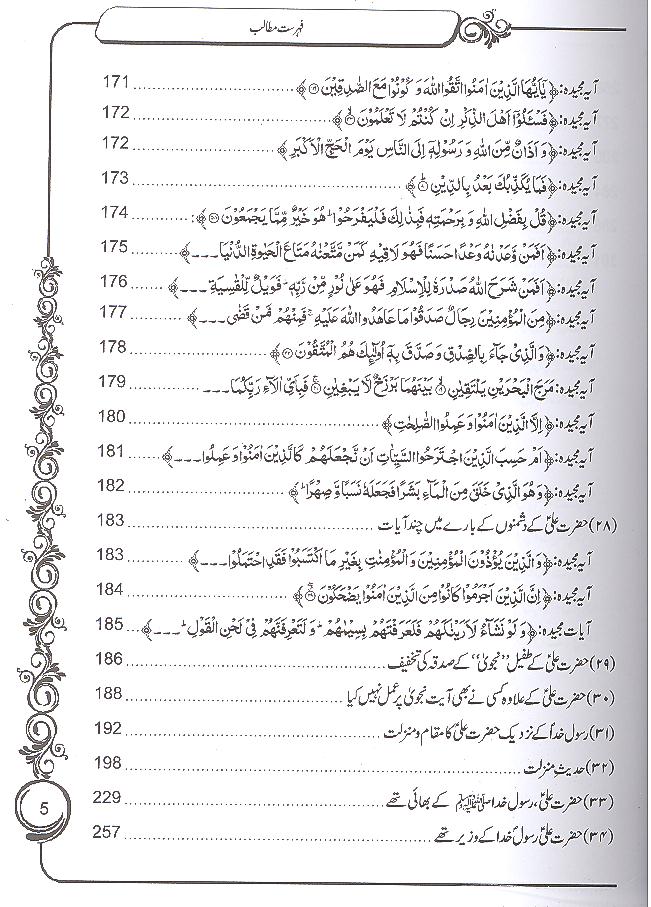 فہرست مطالب
آیہ مجیدہ: ﴿يٰٓاَيُّهَا الَّذِيْنَ اٰمَنُوا اتَّقُوا اللّٰهَ وَ كُوْنُوْا مَعَ الصّٰدِقِيْنَ﴾ 171
آیہ مجیدہ: ﴿فَسْـَٔلُوْٓا اَهْلَ الذِّكْرِ اِنْ كُنْتُمْ لَا تَعْلَمُوْنَ﴾ 172
آیہ مجیدہ: ﴿وَ اَذَانٌ مِّنَ اللّٰهِ وَ رَسُوْلِهٖٓ اِلَى النَّاسِ يَوْمَ الْحَجِّ الْاَكْبَرِ﴾ 172
آیہ مجیدہ: ﴿فَمَا يُكَذِّبُكَ بَعْدُ بِالدِّيْنِ﴾ 173
آیہ مجیدہ: ﴿قُلْ بِفَضْلِ اللّٰهِ وَ بِرَحْمَتِهٖ فَبِذٰلِكَ فَلْيَفْرَحُوْا ؕ هُوَ خَيْرٌ مِّمَّا يَجْمَعُوْنَ﴾: 174
آیہ مجیدہ: ﴿اَفَمَنْ وَّعَدْنٰهُ وَعْدًا حَسَنًا فَهُوَ لَاقِيْهِ كَمَنْ مَّتَّعْنٰهُ مَتَاعَ الْحَيٰوةِ الدُّنْيَا۔۔۔﴾ 175
آیہ مجیدہ: ﴿اَفَمَنْ شَرَحَ اللّٰهُ صَدْرَهٗ لِلْاِسْلَامِ فَهُوَ عَلٰى نُوْرٍ مِّنْ رَّبِّهٖ ؕ فَوَيْلٌ لِّلْقٰسِيَةِ۔۔۔﴾ 176
آیہ مجیدہ: ﴿مِنَ الْمُؤْمِنِيْنَ رِجَالٌ صَدَقُوْا مَا عَاهَدُوا اللّٰهَ عَلَيْهِ ۚ فَمِنْهُمْ مَّنْ قَضٰى۔۔۔﴾ 177
آیہ مجیدہ: ﴿وَ الَّذِيْ جَآءَ بِالصِّدْقِ وَ صَدَّقَ بِهٖٓ اُولٰٓئِكَ هُمُ الْمُتَّقُوْنَ﴾ 178
آیہ مجیدہ: مَرَجَ الْبَحْرَيْنِ يَلْتَقِيٰنِ بَيْنَهُمَا بَرْزَخٌ لَّا يَبْغِيٰنِ فَبِاَيِّ اٰلَآءِ رَبِّكُمَا۔۔۔﴾ 179
آیہ مجیدہ: ﴿اِلَّا الَّذِيْنَ اٰمَنُوْا وَ عَمِلُوا الصّٰلِحٰتِ﴾ 180
آیہ مجیدہ: ﴿اَمْ حَسِبَ الَّذِيْنَ اجْتَرَحُوا السَّيِّاٰتِ اَنْ نَّجْعَلَهُمْ كَالَّذِيْنَ اٰمَنُوْا وَ عَمِلُوا۔۔۔﴾ 181
آیہ مجیدہ: ﴿وَ هُوَ الَّذِيْ خَلَقَ مِنَ الْمَآءِ بَشَرًا فَجَعَلَهٗ نَسَبًا وَّ صِهْرًا ؕ﴾ 182
(۲۸) حضرت علیؑ کے دشمنوں کے بارے میں چند آیات 183
آیہ مجیدہ: ﴿وَ الَّذِيْنَ يُؤْذُوْنَ الْمُؤْمِنِيْنَ وَ الْمُؤْمِنٰتِ بِغَيْرِ مَا اكْتَسَبُوْا فَقَدِ احْتَمَلُوْا۔۔۔﴾ 183
آیہ مجیدہ: ﴿اِنَّ الَّذِيْنَ اَجْرَمُوْا كَانُوْا مِنَ الَّذِيْنَ اٰمَنُوْا يَضْحَكُوْنَ﴾ 184
آیات مجیدہ: ﴿وَ لَوْ نَشَآءُ لَاَرَيْنٰكَهُمْ فَلَعَرَفْتَهُمْ بِسِيْمٰهُمْ ؕ وَ لَتَعْرِفَنَّهُمْ فِيْ لَحْنِ الْقَوْلِ ؕ۔۔۔﴾ 185
(۲۹) حضرت علیؑ کے طفیل ’’نجویٰ‘‘ کے صدقہ کی تخفیف 186
(۳۰) حضرت علیؑ کے علاوہ کسی نے بھی آیت نجویٰ پر عمل نہیں کیا 188
(۳۱) رسول خداؐ کے نزدیک حضرت علیؑ کا مقام و منزلت 192
(۳۲) حدیثِ منزلت 198
(۳۳) حضرت علیؑ، رسول خدا ﷺ کے بھائی تھے 229
(۳۴) حضرت علیؑ رسولؐ خدا کے وزیر تھے 257
5